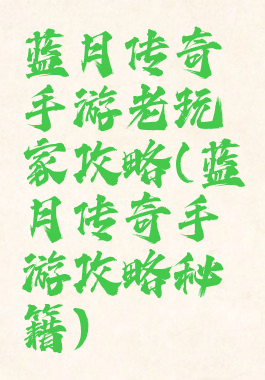 蓝月传奇
手游老玩
家攻略(蓝
月传奇手
游攻略秘
籍)